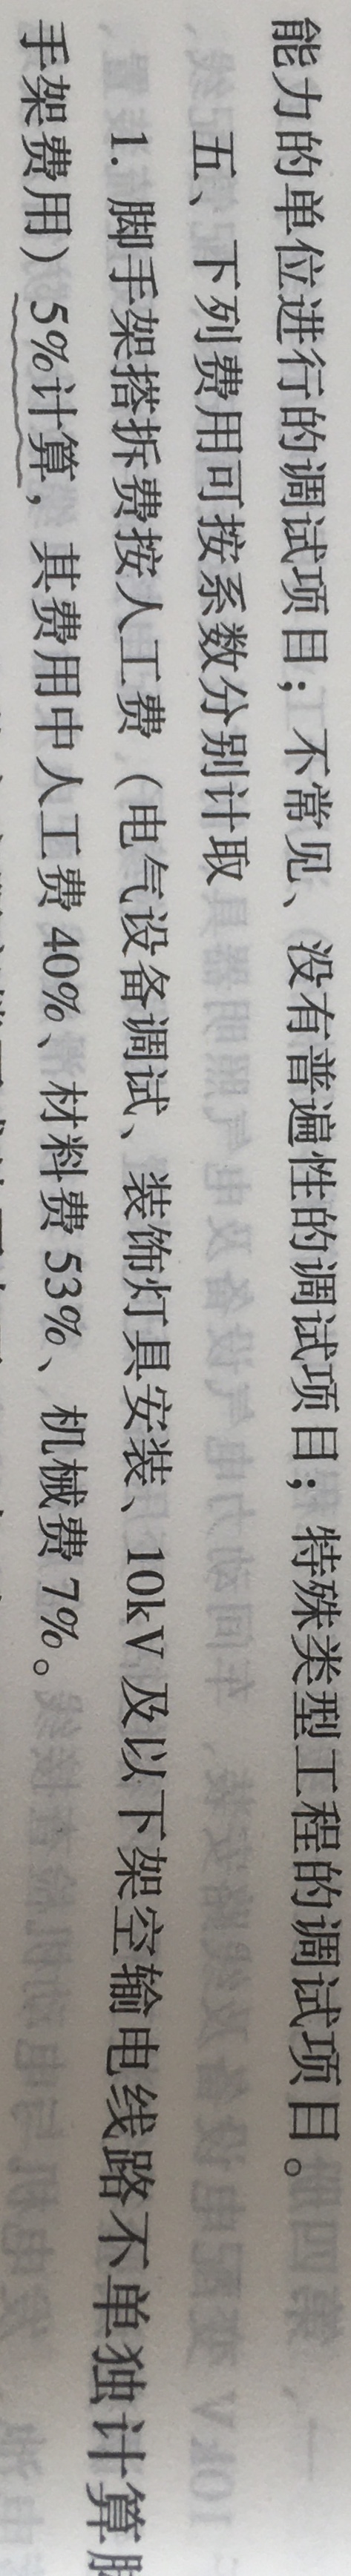 能力的单位进行的调试项目；不常见、没有普遍性的调试项目；特殊类型工程的调试项目。
五、下列费用可按系数分别计取
1. 脚手架搭拆费按人工费（电气设备调试、装饰灯具安装、10kV 及以下架空输电线路不单独计算脚
手架费用）5%计算，其费用中人工费 40%、材料费 53%、机械费 7%。